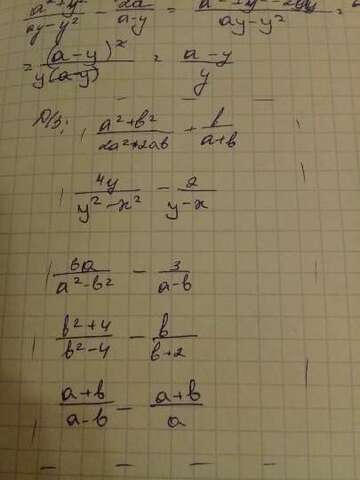 (a²+y²)/(ay-y²) - 2a/(a-y) = (a²+y²-2ay)/(ay-y²) =
= (a-y)²/(y(a-y)) = (a-y)/y
D/з: (a²+b²)/(2a²+2ab) + b/(a+b)
4y/(y²-x²) - 2/(y-x)
6a/(a²-b²) - 3/(a-b)
(b²+4)/(b²-4) - b/(b+2)
(a+b)/(a-b) - (a+b)/a